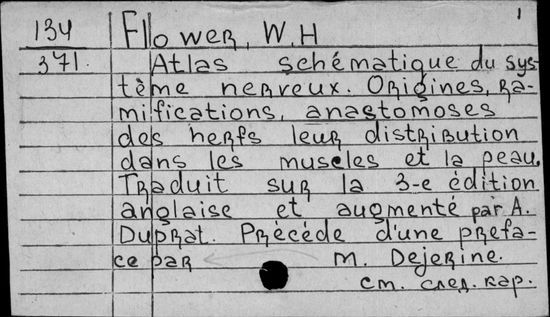 1
134 Flower, W.H
371. Atlas schématique du sys-
tème nerveux. Origines, ra-
mifications, anastomoses
des nerfs leur distribution
dans les muscles et la peau.
Traduit sur la 3-e édition
anglaise et augmenté par A.
Duprat. Précéde d'une prefa-
ce par M. Dejerine.
см. след. кар.